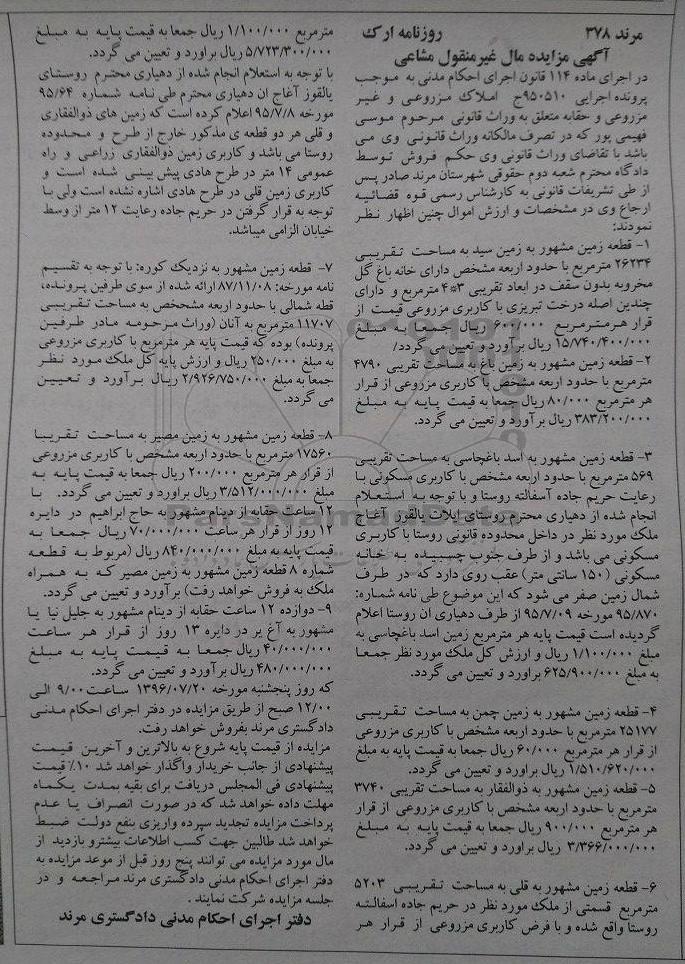 مرند ۳۷۸ روزنامه ارک
آگهی مزایده مال غیرمنقول مشاعی
در اجرای ماده ۱۱۴ قانون اجرای احکام مدنی به موجب
پرونده اجرایی ۹۵۰۵۱۰ج املاک مزروعی و غیر
مزروعی و حقابه متعلق به وراث قانونی مرحوم موسی
فهیمی پور که در تصرف مالکانه وراث قانونی وی می
باشد با تقاضای وراث قانونی وی حکم فروش توسط
دادگاه محترم شعبه دوم حقوقی شهرستان مرند صادر پس
از طی تشریفات قانونی به کارشناس رسمی قوه قضائیه
ارجاع وی در مشخصات و ارزش اموال چنین اظهار نظر
نمودند:
۱- قطعه زمین مشهور به زمین سید به مساحت تقریبی
۲۶۲۳۴ مترمربع با حدود اربعه مشخص دارای خانه باغ گل
مخروبه بدون سقف در ابعاد تقریبی ۳*۴ مترمربع و دارای
چندین اصله درخت تبریزی با کاربری مزروعی قیمت از
قرار هرمترمربع ۶۰۰/۰۰۰ ریال جمعا به مبلغ
۱۵/۷۴۰/۴۰۰/۰۰۰ ریال برآورد و تعیین می گردد/
۲- قطعه زمین مشهور به زمین باغ به مساحت تقریبی ۴۷۹۰
مترمربع با حدود اربعه مشخص با کاربری مزروعی از قرار
هر مترمربع ۸۰/۰۰۰ ریال جمعا به قیمت پایه به مبلغ
۳۸۳/۲۰۰/۰۰۰ ریال برآورد و تعیین می گردد.
۳- قطعه زمین مشهور به اسد باغچاسی به مساحت تقریبی
۵۶۹ مترمربع با حدود اربعه مشخص با کاربری مسکونی با
رعایت حریم جاده آسفالته روستا و با توجه به استعلام
انجام شده از دهیاری محترم روستای ایلات یالقوز آغاج
ملک مورد نظر در داخل محدوده قانونی روستا با کاربری
مسکونی می باشد و از طرف جنوب چسبیده به خانه
مسکونی (۱۵۰ سانتی متر) عقب روی دارد که در طرف
شمال زمین صفر می شود که این موضوع طی نامه شماره:
۹۵/۸۷۰ مورخه ۹۵/۷/۰۹ از طرف دهیاری ان روستا اعلام
گردیده است قیمت پایه هر مترمربع زمین اسد باغچاسی به
مبلغ ۱/۱۰۰/۰۰۰ ریال و ارزش کل ملک مورد نظر جمعا
به مبلغ ۶۲۵/۹۰۰/۰۰۰ براورد و تعیین می گردد.
۴- قطعه زمین مشهور به زمین چمن به مساحت تقریبی
۲۵۱۷۷ مترمربع با حدود اربعه مشخص با کاربری مزروعی
از قرار هر مترمربع ۶۰/۰۰۰ ریال جمعا به قیمت پایه به مبلغ
۱/۵۱۰/۶۲۰/۰۰۰ ریال براورد و تعیین می گردد.
۵- قطعه زمین مشهور به ذوالفقار به مساحت تقریبی ۳۷۴۰
مترمربع با حدود اربعه مشخص با کاربری مزروعی از قرار
هر مترمربع ۹۰۰/۰۰۰ ریال جمعا به قیمت پایه به مبلغ
۳/۳۶۶/۰۰۰/۰۰۰ ریال براورد و تعیین می گردد.
۶- قطعه زمین مشهور به قلی به مساحت تقریبی ۵۲۰۳
مترمربع قسمتی از ملک مورد نظر در حریم جاده اسفالته
روستا واقع شده و با فرض کاربری مزروعی از قرار هر
مترمربع ۱/۱۰۰/۰۰۰ ریال جمعا به قیمت پایه به مبلغ
۵/۷۲۳/۳۰۰/۰۰۰ ریال براورد و تعیین می گردد.
با توجه به استعلام انجام شده از دهیاری محترم روستای
یالقوز آغاج ان دهیاری محترم طی نامه شماره ۹۵/۶۴
مورخه ۹۵/۷/۸ اعلام کرده است که زمین های ذوالفقاری
و قلی هر دو قطعه ی مذکور خارج از طرح و محدوده
روستا می باشد و کاربری زمین ذوالفقاری زراعی و راه
عمومی ۱۴ متر در طرح هادی پیش بینی شده است و
کاربری زمین قلی در طرح هادی اشاره نشده است ولی با
توجه به قرار گرفتن در حریم جاده رعایت ۱۲ متر از وسط
خیابان الزامی میباشد.
۷- قطعه زمین مشهور به نزدیک کوره: با توجه به تقسیم
نامه مورخه: ۸۷/۱۱/۰۸ ارائه شده از سوی طرفین پرونده،
قطه شمالی با حدود اربعه مشخص به مساحت تقریبی
۱۱۷۰۷ مترمربع به آنان (وراث مرحومه مادر طرفین
پرونده) بوده که قیمت پایه هر مترمربع با کاربری مزروعی
به مبلغ ۲۵۰/۰۰۰ ریال و ارزش پایه کل ملک مورد نظر
جمعا به مبلغ ۲/۹۲۶/۷۵۰/۰۰۰ ریال برآورد و تعیین
می گردد.
۸- قطعه زمین مشهور به زمین مصیر به مساحت تقریبا
۱۷۵۶۰ مترمربع با حدود اربعه مشخص با کاربری مزروعی
از قرار هر مترمربع ۲۰۰/۰۰۰ ریال جمعا به قیمت پایه به
مبلغ ۳/۵۱۲/۰۰۰/۰۰۰ ریال براورد و تعیین می گردد. با
۱۲ ساعت حقابه از دینام مشهور به حاج ابراهیم در دایره
۱۲ روز از قرار هر ساعت ۷۰/۰۰۰/۰۰۰ ریال جمعا به
قیمت پایه به مبلغ ۸۴۰/۰۰۰/۰۰۰ ریال (مربوط به قطعه
شماره ۸ قطعه زمین مشهور به زمین مصیر که به همراه
ملک به فروش خواهد رفت) برآورد و تعیین می گردد.
۹- دوازده ۱۲ ساعت حقابه از دینام مشهور به جلیل نیا یا
مشهور به آغ یر در دایره ۱۳ روز از قرار هر ساعت
۴۰/۰۰۰/۰۰۰ ریال جمعا به قیمت پایه به مبلغ
۴۸۰/۰۰۰/۰۰۰ ریال برآورد و تعیین می گردد.
که روز پنجشنبه مورخه ۱۳۹۶/۰۷/۲۰ ساعت ۹/۰۰ الی
۱۲/۰۰ صبح از طریق مزایده در دفتر اجرای احکام مدنی
دادگستری مرند بفروش خواهد رفت.
مزایده از قیمت پایه شروع به بالاترین و آخرین قیمت
پیشنهادی از جانب خریدار واگذار خواهد شد ۱۰٪ قیمت
پیشنهادی فی المجلس دریافت برای بقیه بمدت یکماه
مهلت داده خواهد شد که در صورت انصراف یا عدم
پرداخت مزایده تجدید سپرده واریزی بنفع دولت ضبط
خواهد شد طالبین جهت کسب اطلاعات بیشترو بازدید از
مال مورد مزایده می توانند پنج روز قبل از موعد مزایده به
دفتر اجرای احکام مدنی دادگستری مرند مراجعه و در
جلسه مزایده شرکت نمایند.
دفتر اجرای احکام مدنی دادگستری مرند
ParsNamadData